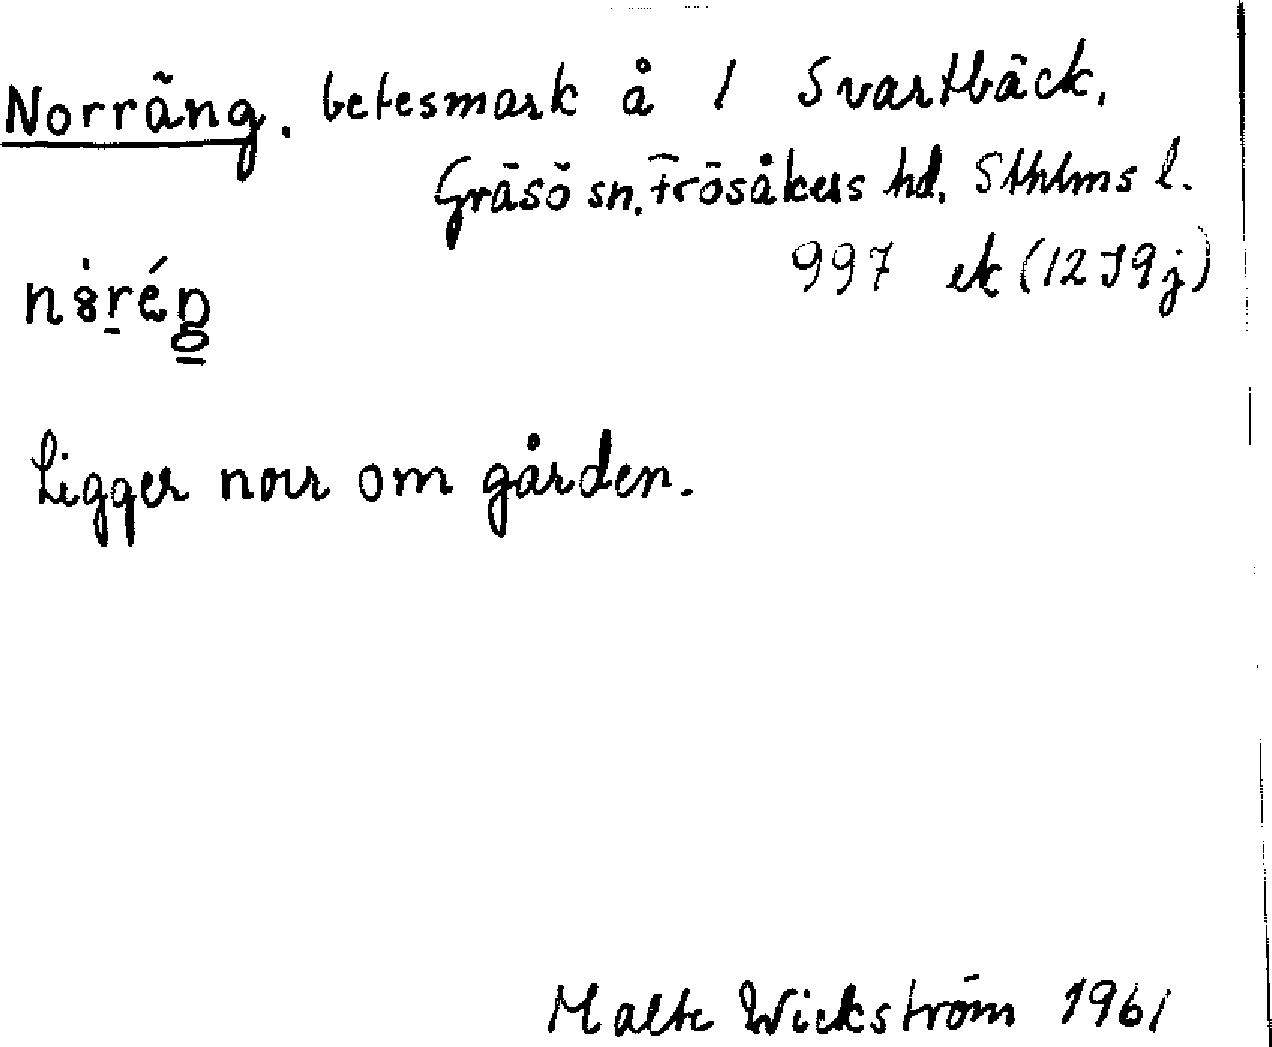 Norräng. betesmark å 1 Svartbäck,
Gräsö sn. Frösåkers hd. Sthlms l.
997 ek (12 I 9 j)
Ligger norr om gården.
Malte Wickström 1961